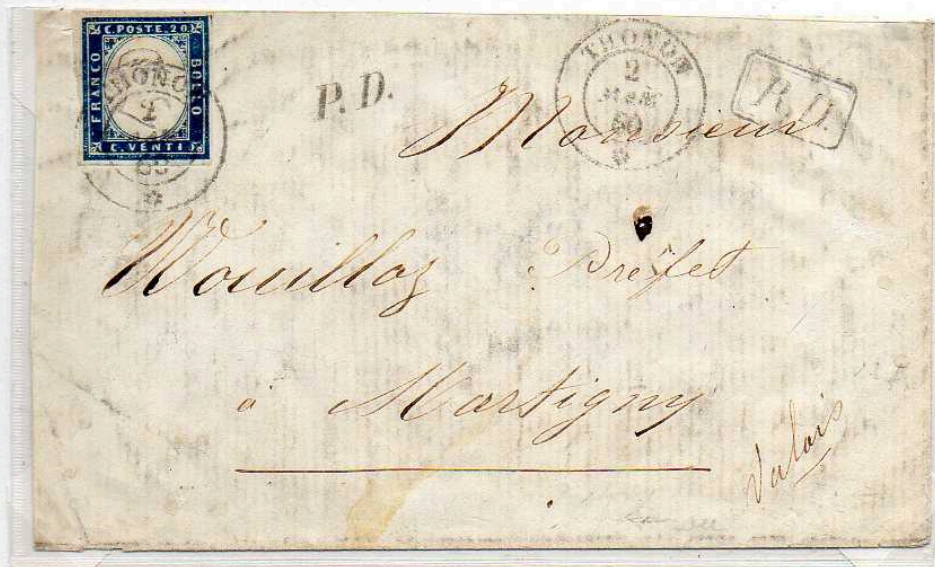 C. POSTE. 20.
FRANCO
BOLLO
C. VENTI
THONON
2
P. D.
THONON
2
60
P.D.
Monsieur
Wouilloz Préfet
à Martigny
Valais